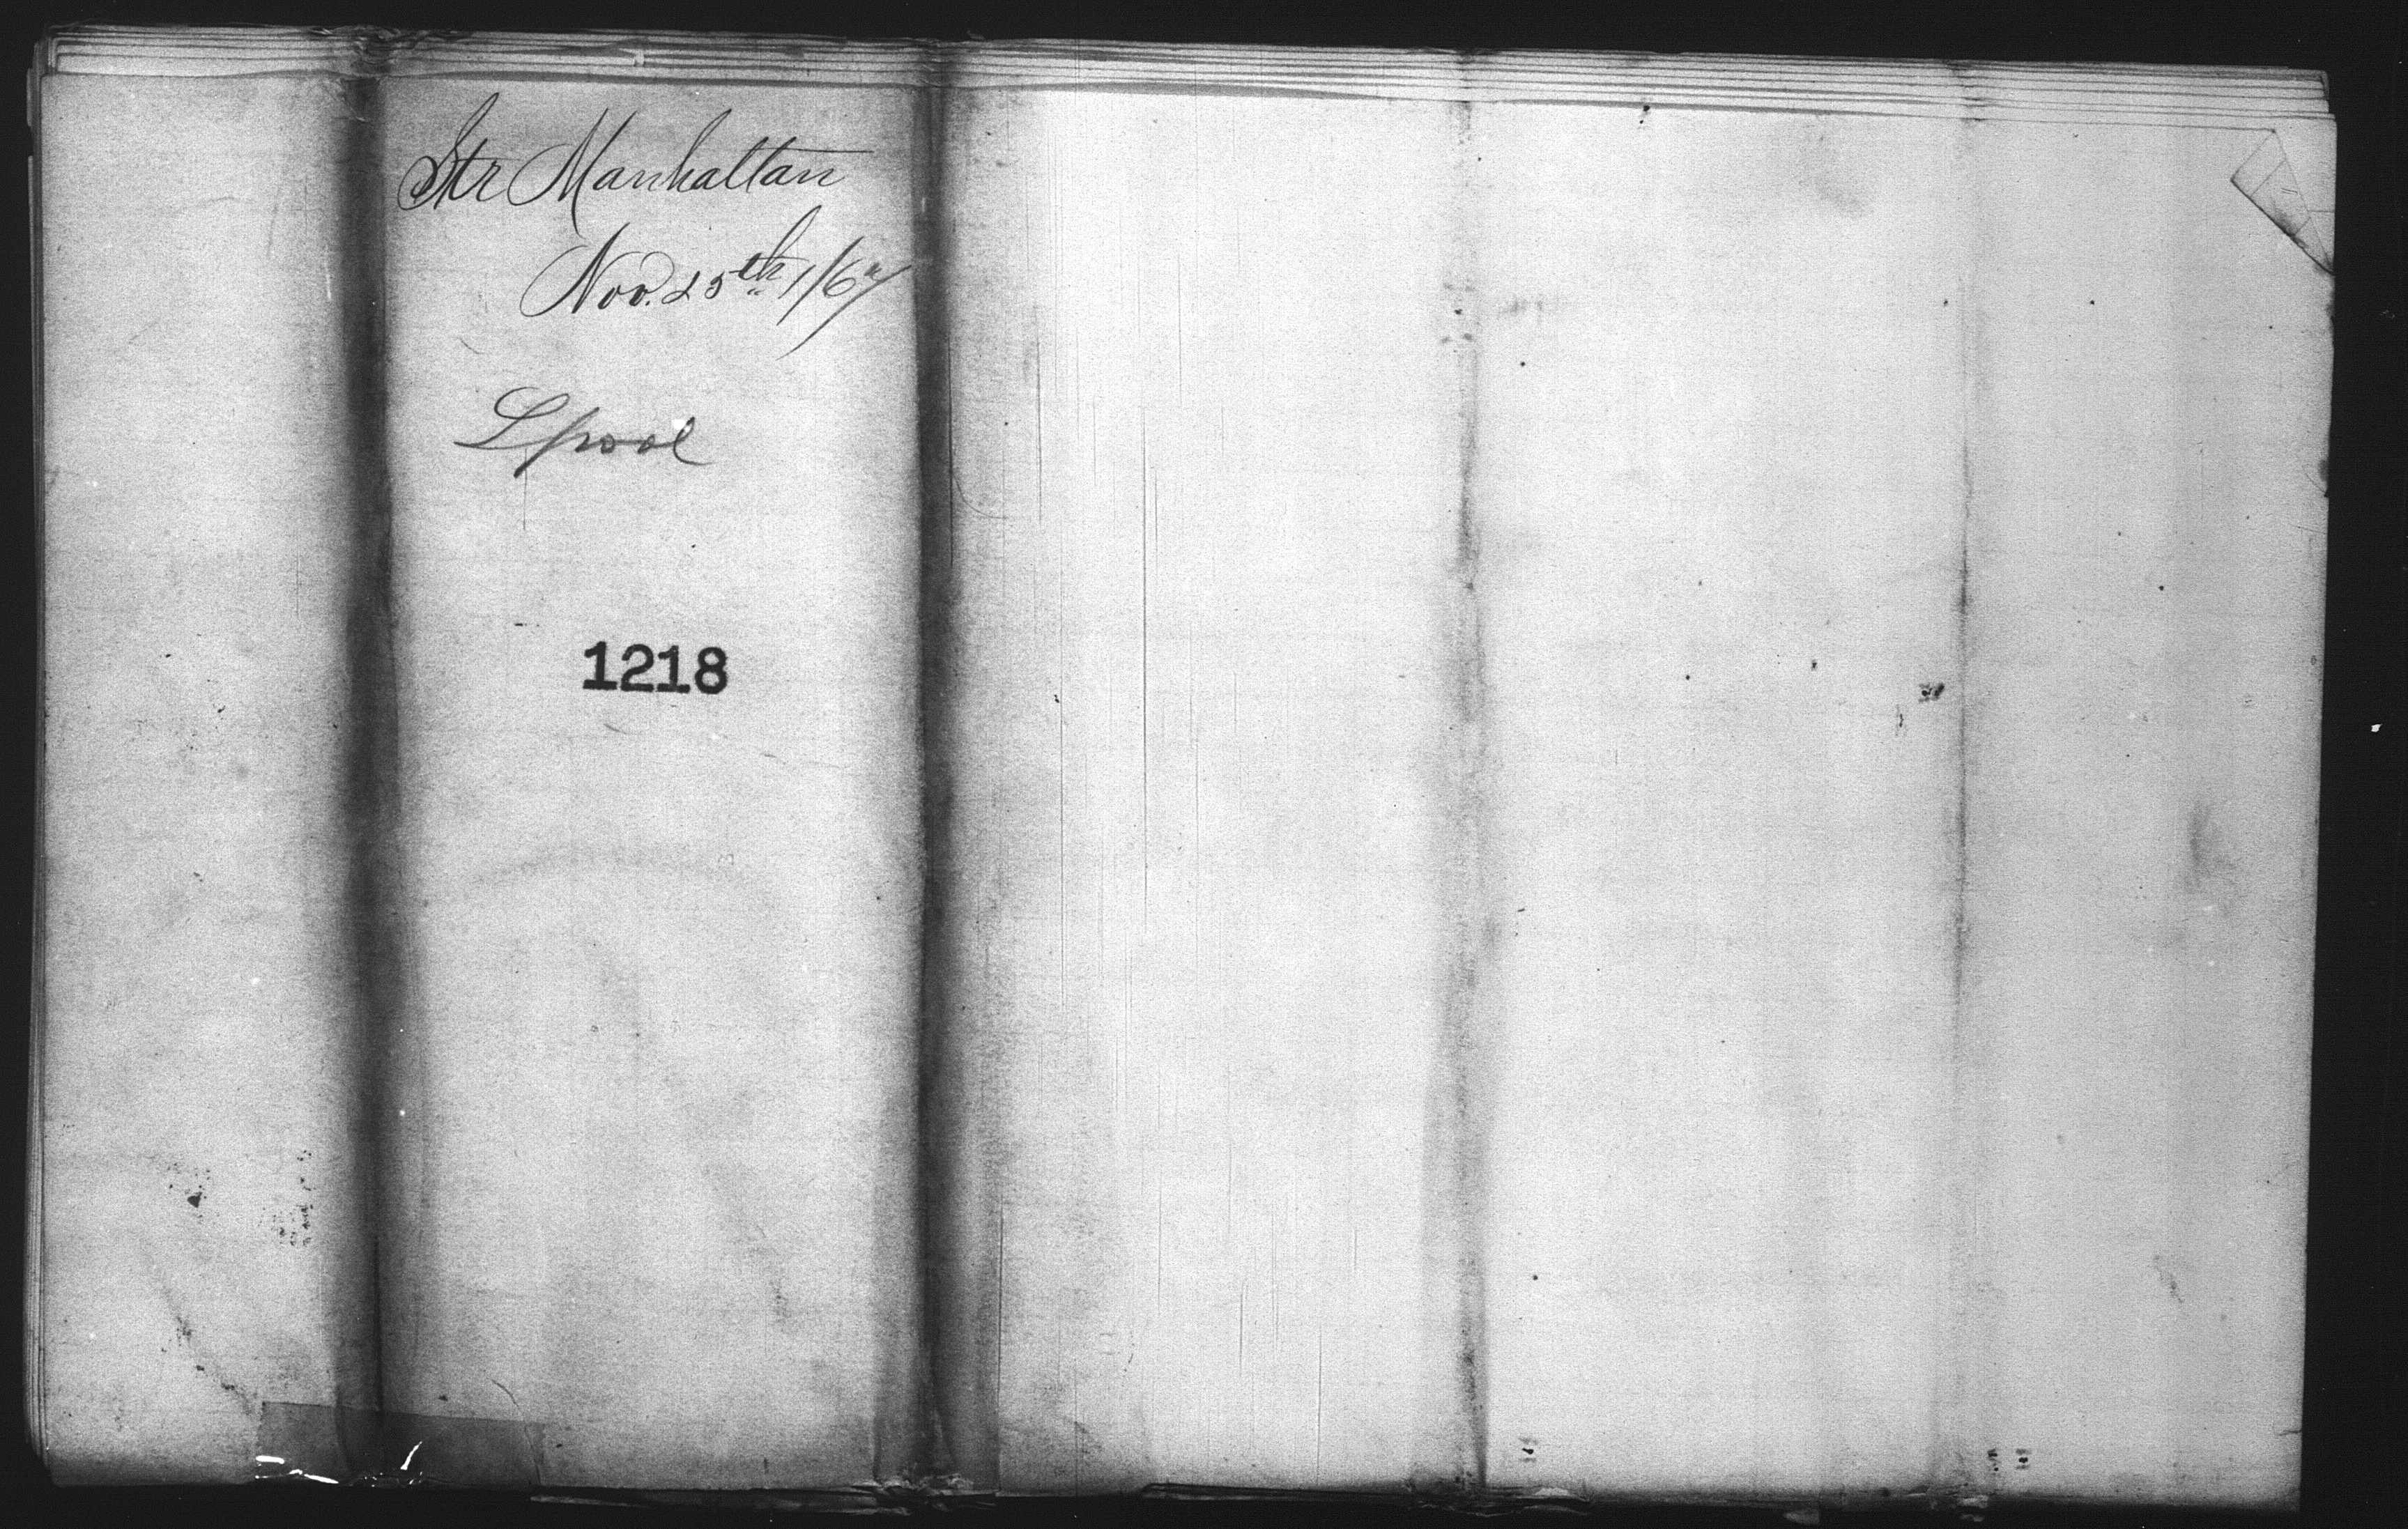 Str Manhattan
Nov. 25th 1/67
Lpool
1218